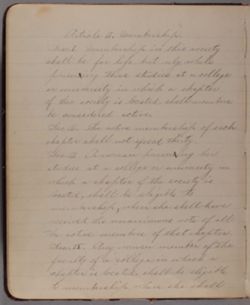 Article 2. Membership.
Sec. 1. Membership in this society
shall be for life but only while
pursuing their studies at a college
or university in which a chapter
of this society is located, shall members
be considered active.
Sec. 2. The active membership of each
chapter shall not exceed thirty.
Sec. 3. A woman pursuing her
studies at a college or university in
which a chapter of the society is
located, shall be eligible to
membership, when she shall have
received the unanimous vote of all
the active members of that chapter.
Any woman member of the
faculty of a college in which a
chapter is located shall be eligible
to membership when she shall